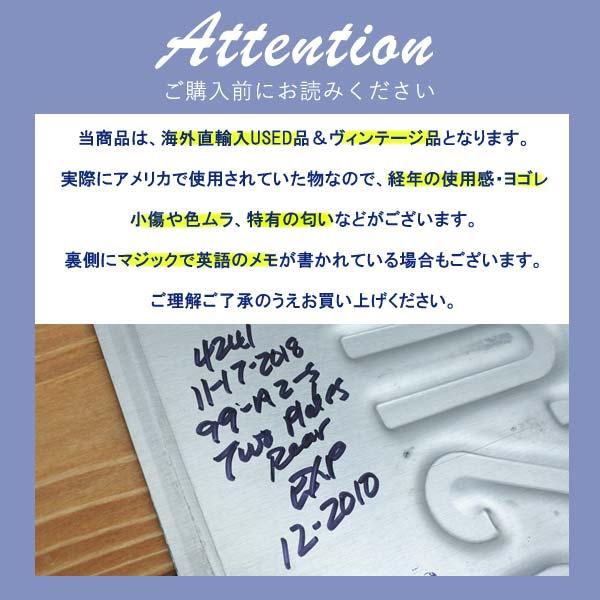 Attention
ご購入前にお読みください
当商品は、海外直輸入USED品＆ヴィンテージ品となります。
実際にアメリカで使用されていた物なので、経年の使用感・ヨゴレ
小傷や色ムラ、特有の匂いなどがございます。
裏側にマジックで英語のメモが書かれている場合もございます。
ご理解ご了承のうえお買い上げください。
11-17-2018
Two Plates
Rear
EXP
12-2010